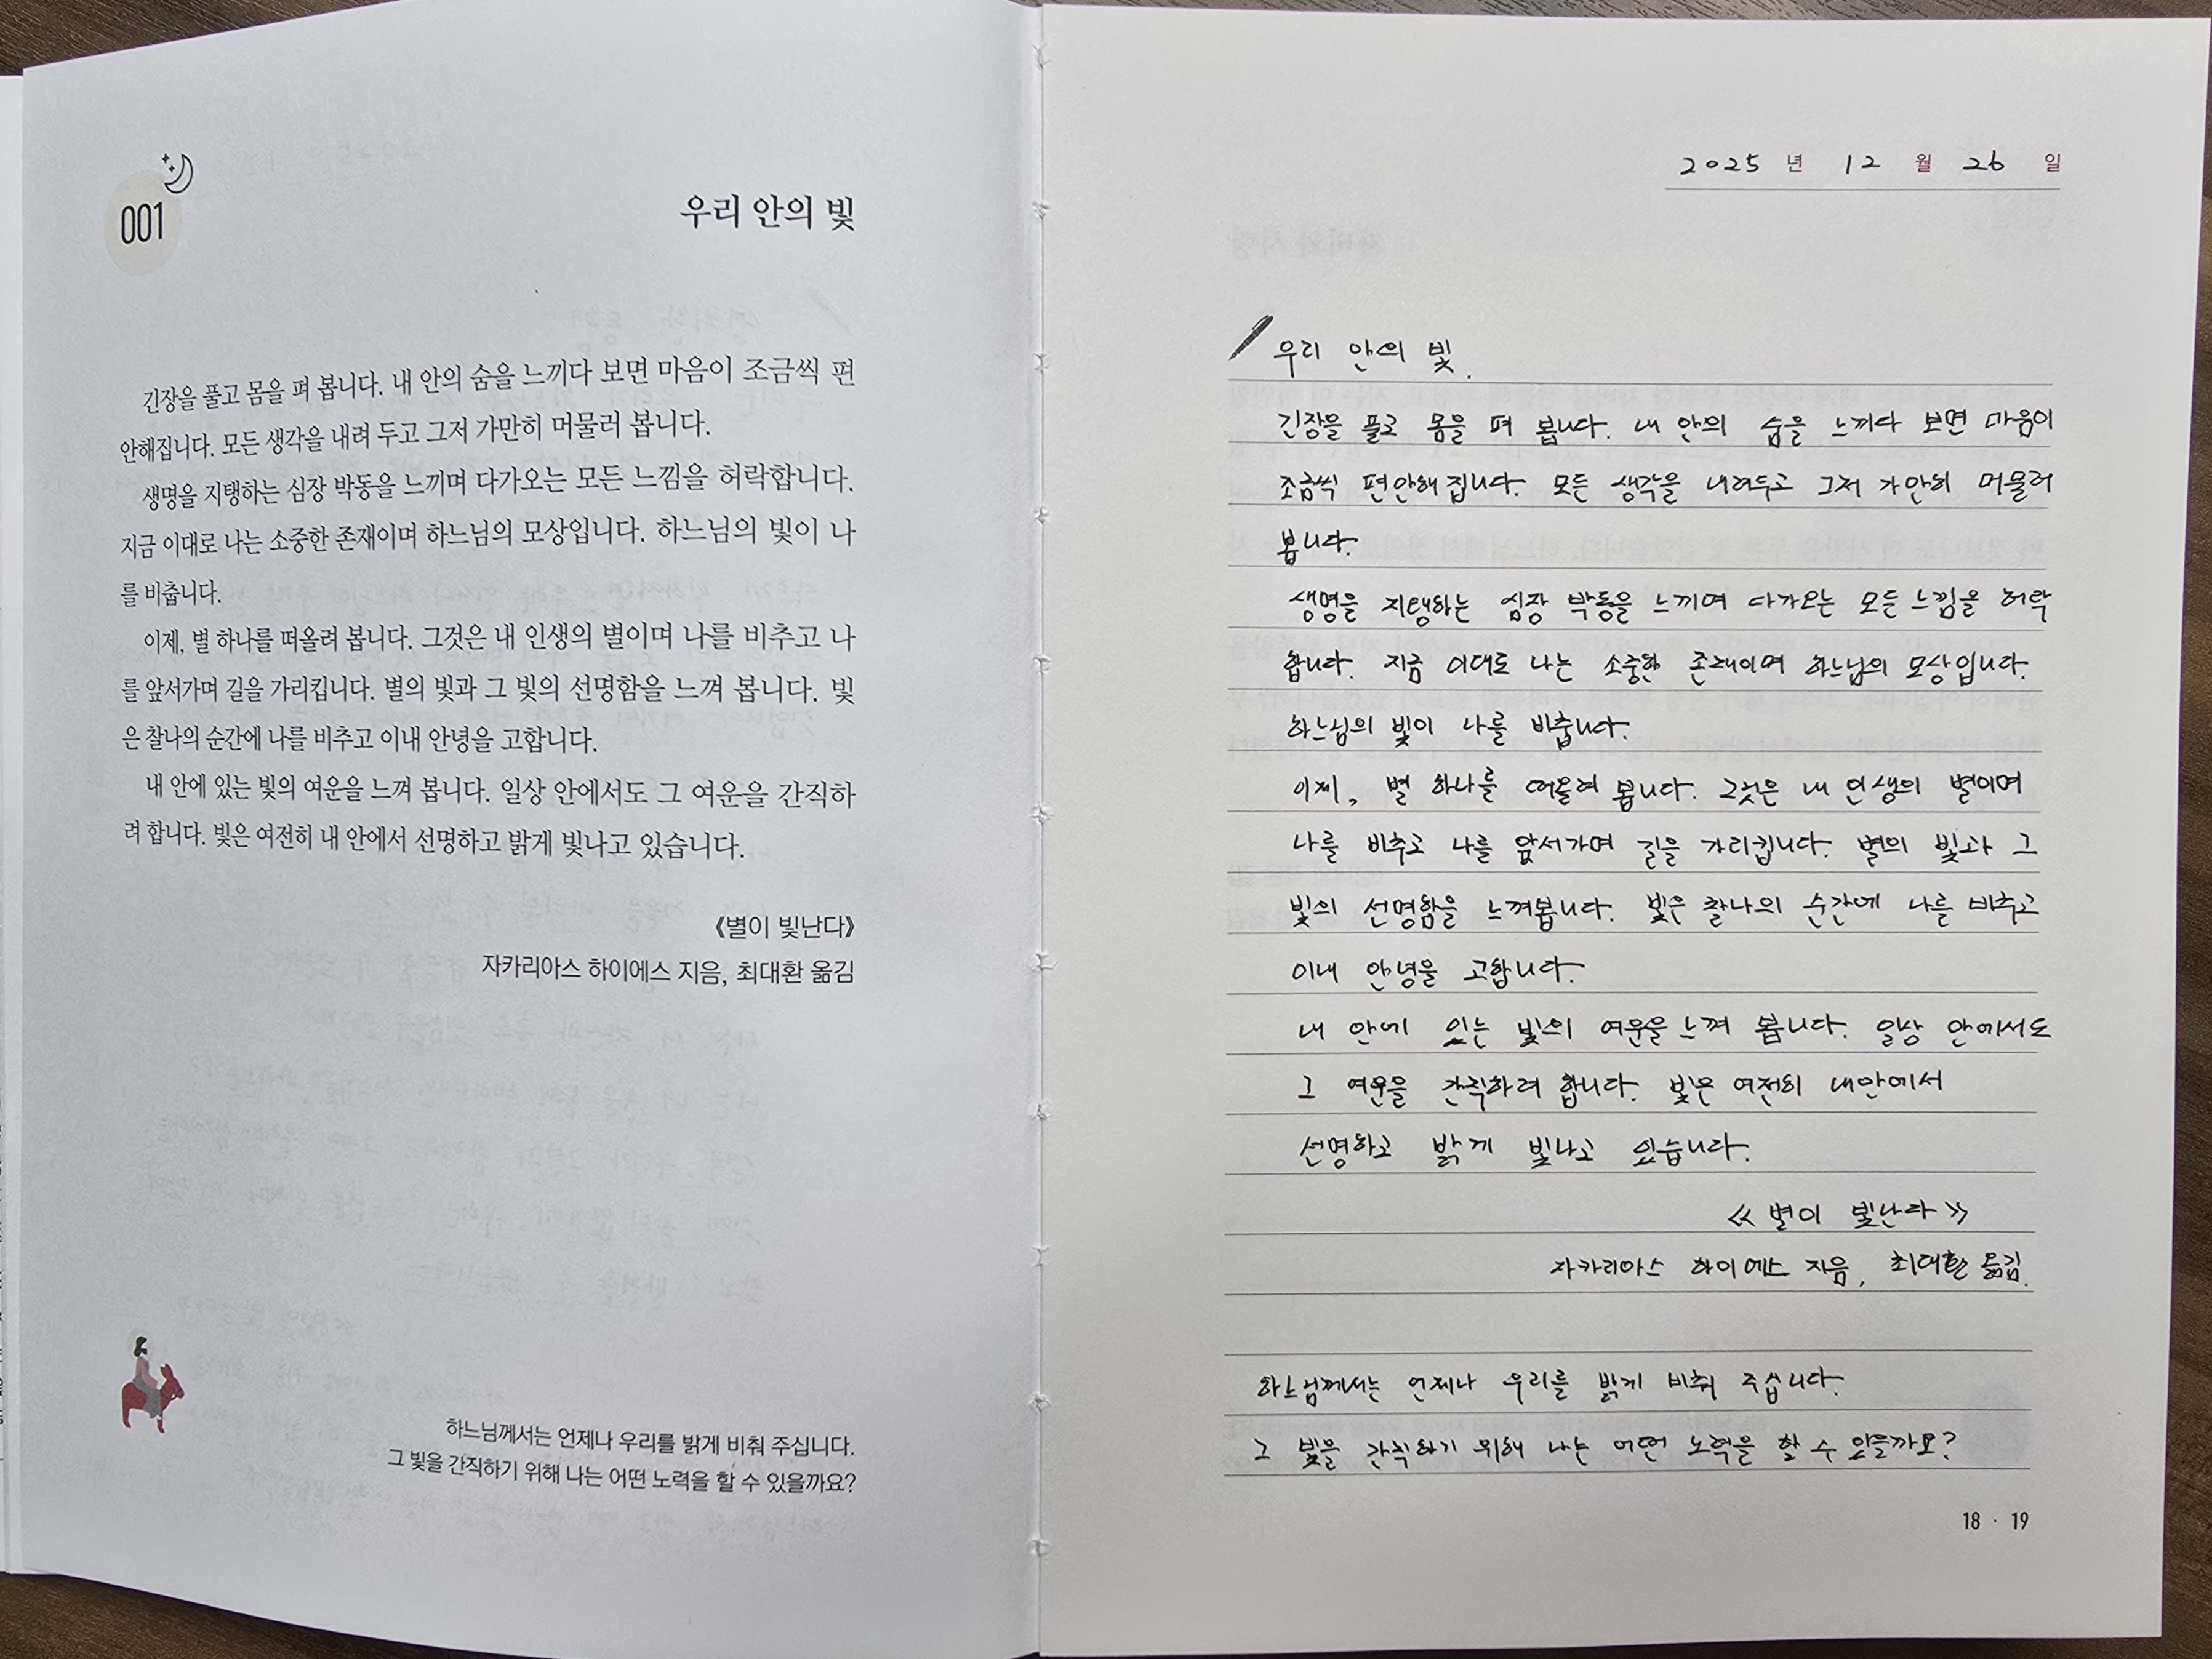 001
우리 안의 빛
긴장을 풀고 몸을 펴 봅니다. 내 안의 숨을 느끼다 보면 마음이 조금씩 편
안해집니다. 모든 생각을 내려 두고 그저 가만히 머물러 봅니다.
생명을 지탱하는 심장 박동을 느끼며 다가오는 모든 느낌을 허락합니다.
지금 이대로 나는 소중한 존재이며 하느님의 모상입니다. 하느님의 빛이 나
를 비춥니다.
이제, 별 하나를 떠올려 봅니다. 그것은 내 인생의 별이며 나를 비추고 나
를 앞서가며 길을 가리킵니다. 별의 빛과 그 빛의 선명함을 느껴 봅니다. 빛
은 찰나의 순간에 나를 비추고 이내 안녕을 고합니다.
내 안에 있는 빛의 여운을 느껴 봅니다. 일상 안에서도 그 여운을 간직하
려 합니다. 빛은 여전히 내 안에서 선명하고 밝게 빛나고 있습니다.
《별이 빛난다》
자카리아스 하이에스 지음, 최대환 옮김
하느님께서는 언제나 우리를 밝게 비춰 주십니다.
그 빛을 간직하기 위해 나는 어떤 노력을 할 수 있을까요?
2025 년 12 월 26 일
우리 안의 빛.
긴장을 풀고 몸을 펴 봅니다. 내 안의 숨을 느끼다 보면 마음이
조금씩 편안해집니다. 모든 생각을 내려두고 그저 가만히 머물러
봅니다.
생명을 지탱하는 심장 박동을 느끼며 다가오는 모든 느낌을 허락
합니다. 지금 이대로 나는 소중한 존재이며 하느님의 모상입니다.
하느님의 빛이 나를 비춥니다.
이제, 별 하나를 떠올려 봅니다. 그것은 내 인생의 별이며
나를 비추고 나를 앞서가며 길을 가리킵니다. 별의 빛과 그
빛의 선명함을 느껴봅니다. 빛은 찰나의 순간에 나를 비추고
이내 안녕을 고합니다.
내 안에 있는 빛의 여운을 느껴 봅니다. 일상 안에서도
그 여운을 간직하려 합니다. 빛은 여전히 내안에서
선명하고 밝게 빛나고 있습니다.
《별이 빛난다》
자카리아스 하이에스 지음, 최대환 옮김.
하느님께서는 언제나 우리를 밝게 비춰 주십니다.
그 빛을 간직하기 위해 나는 어떤 노력을 할 수 있을까요?
18 · 19